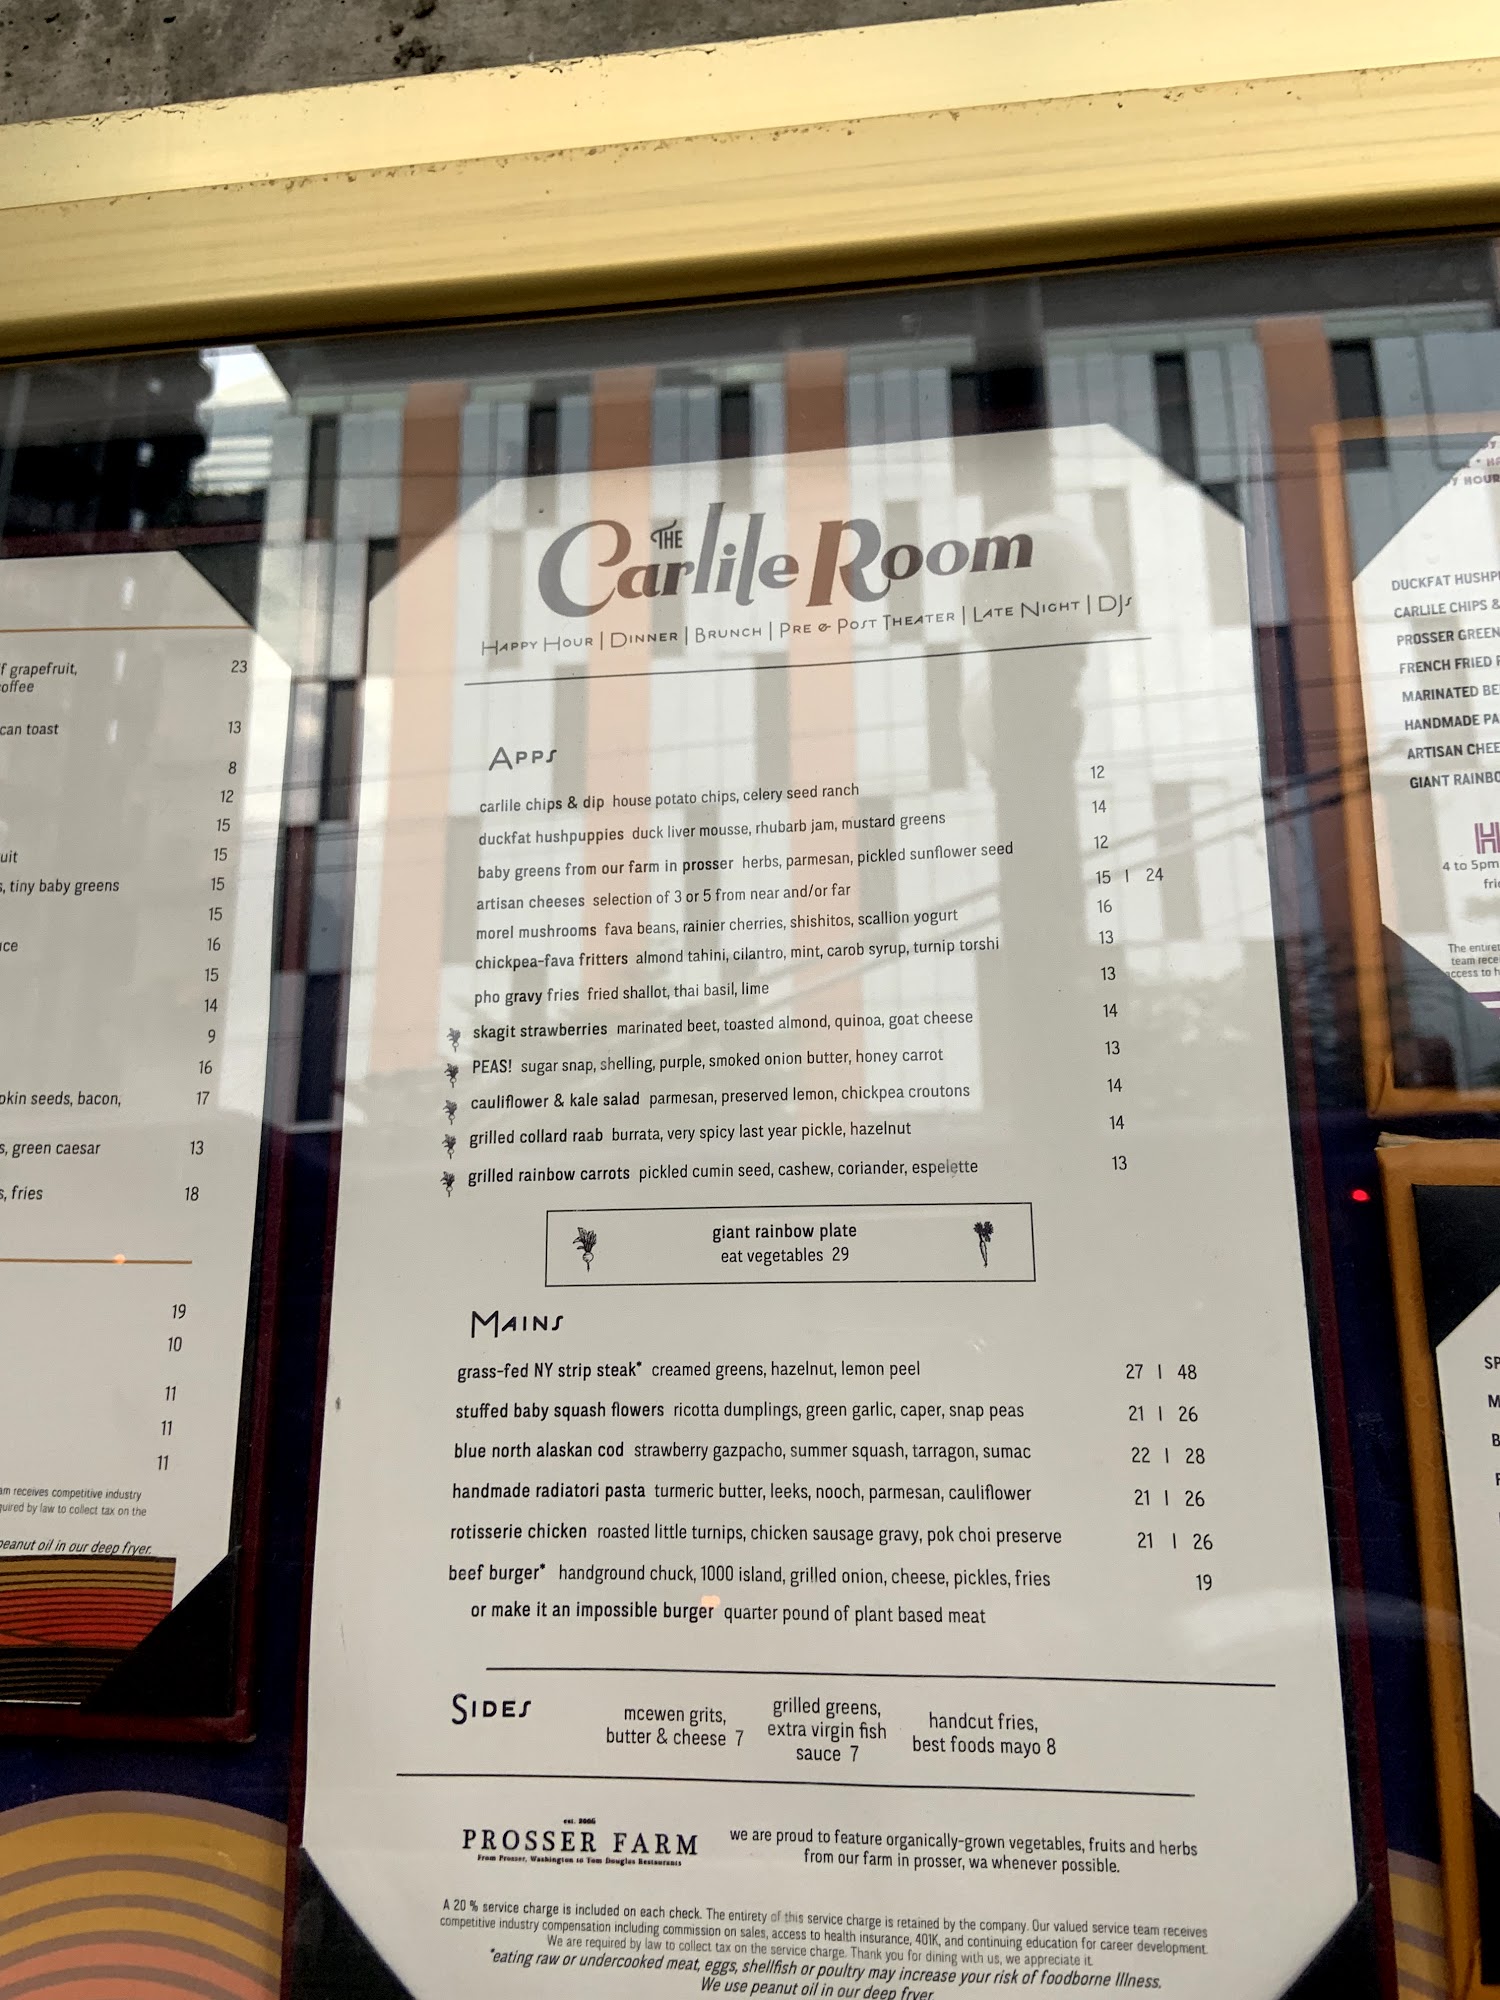 THE
Carlile Room
Happy Hour | Dinner | Brunch | Pre & Post Theater | Late Night | DJs
Apps
carlile chips & dip house potato chips, celery seed ranch 12
duckfat hushpuppies duck liver mousse, rhubarb jam, mustard greens 14
baby greens from our farm in prosser herbs, parmesan, pickled sunflower seed 12
artisan cheeses selection of 3 or 5 from near and/or far 15 | 24
morel mushrooms fava beans, rainier cherries, shishitos, scallion yogurt 16
chickpea-fava fritters almond tahini, cilantro, mint, carob syrup, turnip torshi 13
pho gravy fries fried shallot, thai basil, lime 13
skagit strawberries marinated beet, toasted almond, quinoa, goat cheese 14
PEAS! sugar snap, shelling, purple, smoked onion butter, honey carrot 13
cauliflower & kale salad parmesan, preserved lemon, chickpea croutons 14
grilled collard raab burrata, very spicy last year pickle, hazelnut 14
grilled rainbow carrots pickled cumin seed, cashew, coriander, espelette 13
giant rainbow plate
eat vegetables 29
Mains
grass-fed NY strip steak* creamed greens, hazelnut, lemon peel 27 | 48
stuffed baby squash flowers ricotta dumplings, green garlic, caper, snap peas 21 | 26
blue north alaskan cod strawberry gazpacho, summer squash, tarragon, sumac 22 | 28
handmade radiatori pasta turmeric butter, leeks, nooch, parmesan, cauliflower 21 | 26
rotisserie chicken roasted little turnips, chicken sausage gravy, pok choi preserve 21 | 26
beef burger* handground chuck, 1000 island, grilled onion, cheese, pickles, fries 19
or make it an impossible burger quarter pound of plant based meat
Sides
mcewen grits,
butter & cheese 7
grilled greens,
extra virgin fish
sauce 7
handcut fries,
best foods mayo 8
est. 2006
PROSSER FARM
From Prosser, Washington to Tom Douglas Restaurants
we are proud to feature organically-grown vegetables, fruits and herbs
from our farm in prosser, wa whenever possible.
A 20 % service charge is included on each check. The entirety of this service charge is retained by the company. Our valued service team receives
competitive industry compensation including commission on sales, access to health insurance, 401K, and continuing education for career development.
We are required by law to collect tax on the service charge. Thank you for dining with us, we appreciate it.
*eating raw or undercooked meat, eggs, shellfish or poultry may increase your risk of foodborne Illness.
We use peanut oil in our deep fryer
f grapefruit, 23
offee
can toast 13
8
12
15
uit 15
s, tiny baby greens 15
15
uce 16
15
14
9
16
pkin seeds, bacon, 17
s, green caesar 13
s, fries 18
19
10
11
11
11
am receives competitive industry
quired by law to collect tax on the
peanut oil in our deep fryer.
Y HOUR
DUCKFAT HUSHP
CARLILE CHIPS &
PROSSER GREEN
FRENCH FRIED
MARINATED BE
HANDMADE PA
ARTISAN CHEE
GIANT RAINBO
H
4 to 5pm
fri
The entiret
team rece
access to h
SP
M
B